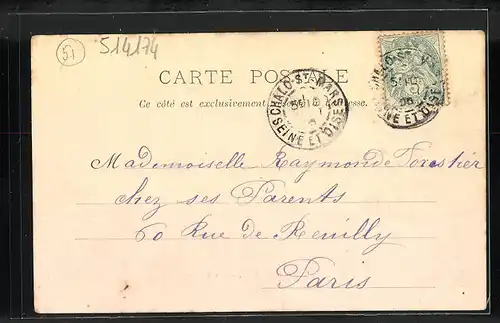 51
514174
CARTE POSTALE
Ce côté est exclusivement réservé à l'adresse.
CHALO-ST-MARS
SEINE ET OISE
CHALO-ST-M
SEINE ET OISE
Mademoiselle Raymonde Forestier
chez ses Parents
60 Rue de Reuilly
Paris